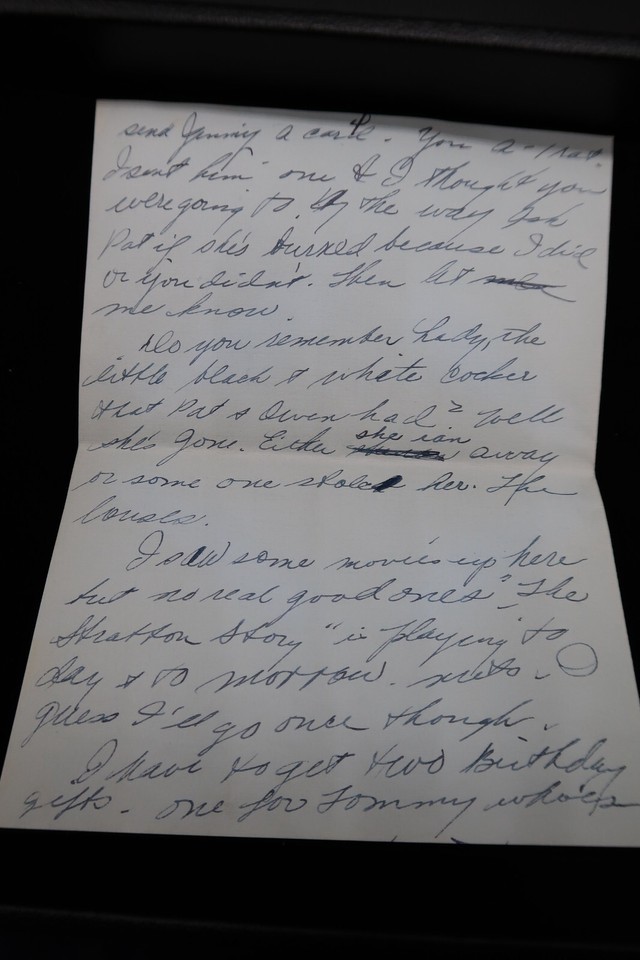 send Jimmy a card. You a-rat.
I sent him one & I thought you
were going to. By the way ask
Pat if she's burned because I did
or you didn't. Then let
me know.
Do you remember Lady, the
little black & white cocker
that Pat & Owen had? Well
she's gone. Either she ran away
or some one stole her. The
louses.
I saw some movies up here
but no real good ones. "The
Stratton Story" is playing to
day & to morrow. nuts.
guess I'll go once though.
I have to get two Birthday
gifts. one for Tommy who's